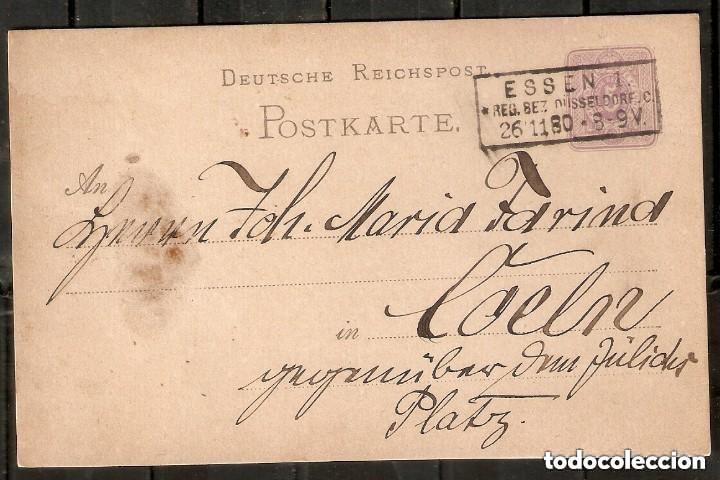 DEUTSCHE REICHSPOST
POSTKARTE.
ESSEN 1
* REG. BEZ. DÜSSELDORF. C.
26 11 80 - 8-9 V.
An
Herrn Joh. Maria Farina
in Coeln
gegenüber dem Jülichs
Platz.
todocoleccion
todocoleccion.net